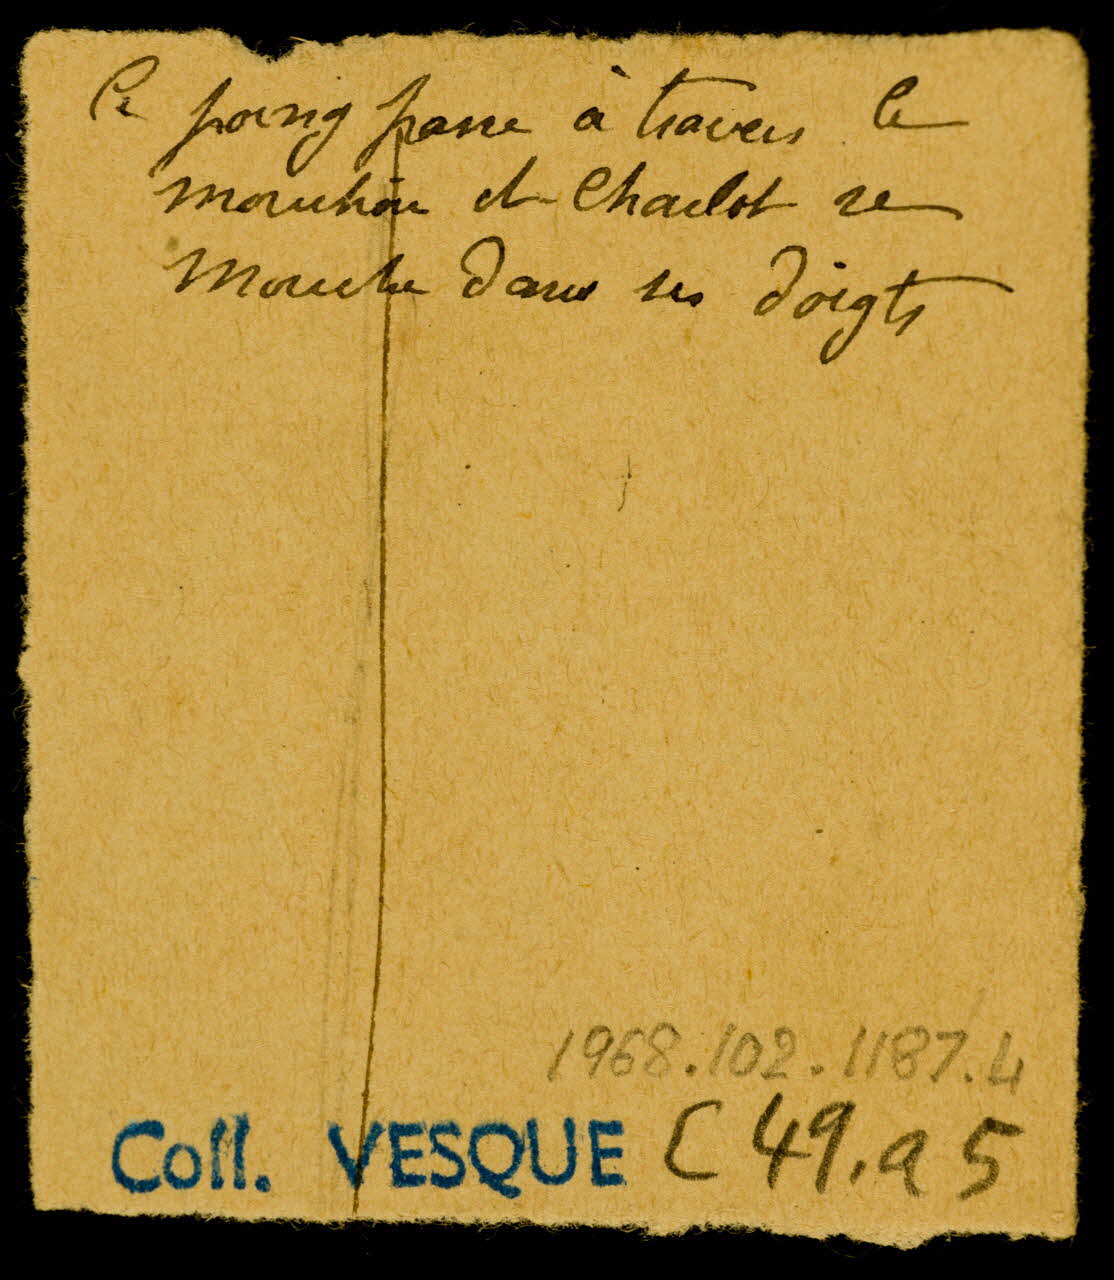 Le poing passe à travers le
mouchoir et Charlot se
mouche dans ses doigts
1968.102.1187.4
Coll. VESQUE C 49.a 5